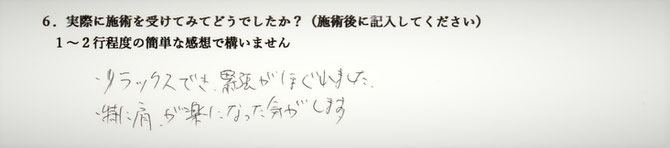 6．実際に施術を受けてみてどうでしたか？（施術後に記入してください）
1～2行程度の簡単な感想で構いません
・リラックスでき、緊張がほぐれました。
・特に肩が楽になった気がします